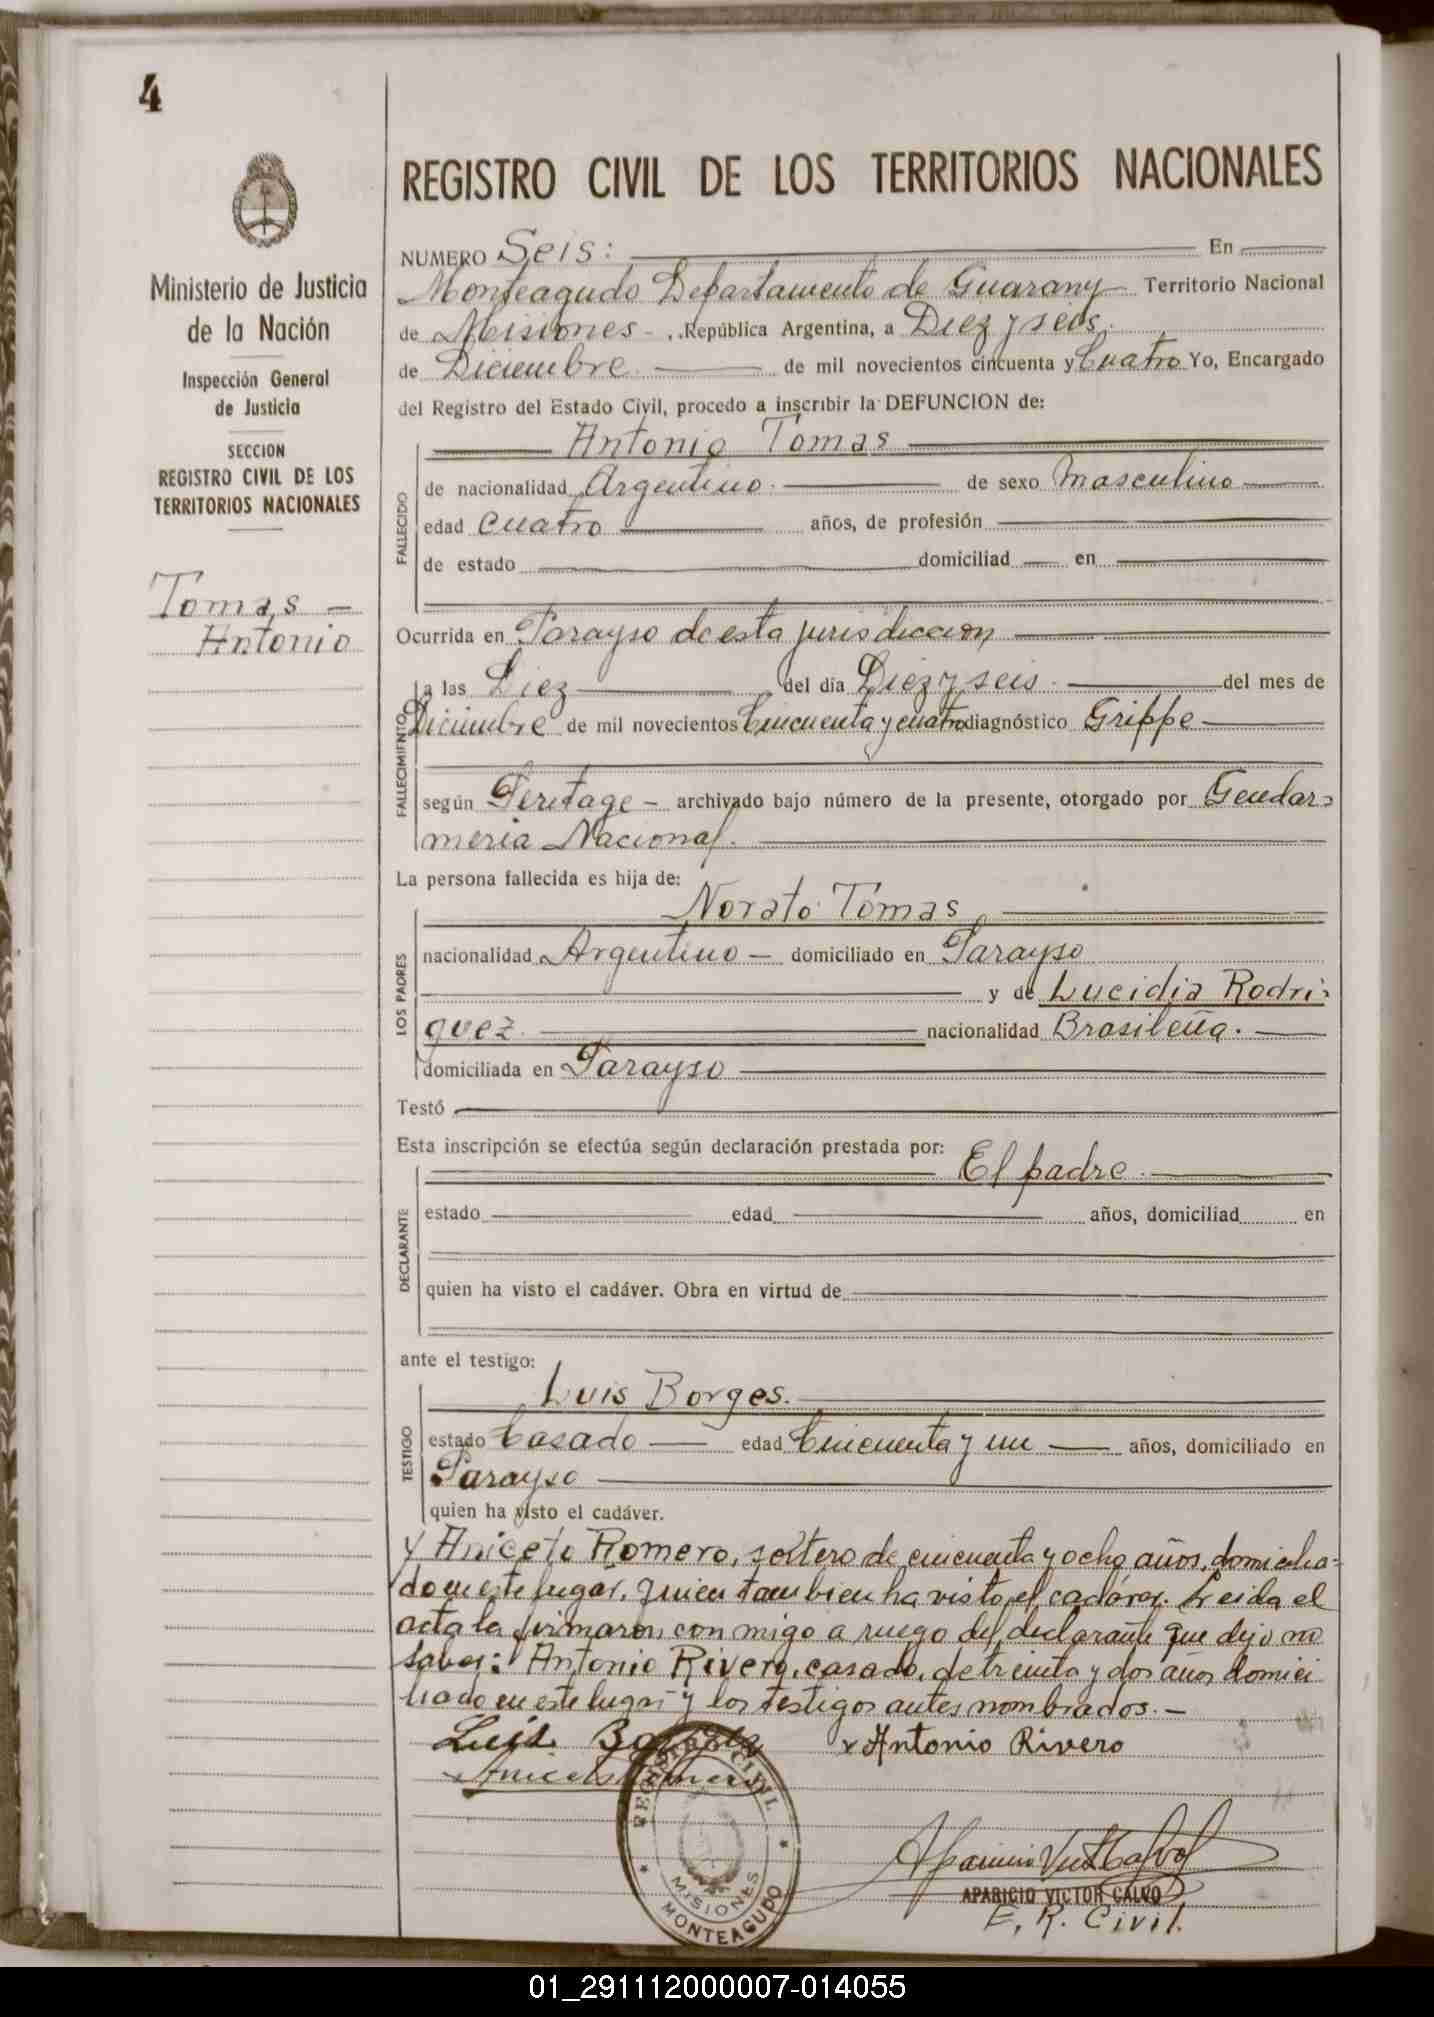 4
REGISTRO CIVIL DE LOS TERRITORIOS NACIONALES
Ministerio de Justicia
de la Nación
Inspección General
de Justicia
SECCION
REGISTRO CIVIL DE LOS
TERRITORIOS NACIONALES
Tomas -
Antonio
NUMERO Seis: En
Monteagudo Departamento de Guarany Territorio Nacional
de Misiones - República Argentina, a Diez y seis
de Diciembre de mil novecientos cincuenta y Cuatro Yo, Encargado
del Registro del Estado Civil, procedo a inscribir la DEFUNCION de:
Antonio Tomas
FALLECIDO
de nacionalidad Argentino de sexo Masculino
edad Cuatro años, de profesión
de estado domiciliad en
Ocurrida en Parayso de esta jurisdiccion
FALLECIMIENTO
a las Diez del día Diez y seis del mes de
Diciembre de mil novecientos Cincuenta y cuatro diagnóstico Grippe
según Peritage - archivado bajo número de la presente, otorgado por Gendar-
meria Nacional.
La persona fallecida es hija de:
LOS PADRES
Norato Tomas
nacionalidad Argentino - domiciliado en Parayso
y de Lucidia Rodri-
guez nacionalidad Brasileña.
domiciliada en Parayso
Testó
Esta inscripción se efectúa según declaración prestada por:
El padre
DECLARANTE
estado edad años, domiciliad en
quien ha visto el cadáver. Obra en virtud de
ante el testigo:
TESTIGO
Luis Borges.
estado Casado edad Cincuenta y un años, domiciliado en
Parayso
quien ha visto el cadáver.
y Aniceto Romero, soltero de cincuenta y ocho años, domicilia-
do en este lugar, quien tambien ha visto el cadáver. Leida el
acta la firmaron con migo a ruego del declarante que dijo no
saber: Antonio Rivero, casado, de treinta y dos años domici
liado en este lugar y los testigos antes nombrados. -
Luis x Antonio Rivero
Aniceto Romero
REGISTRO CIVIL
MISIONES
MONTEAGUDO
APARICIO VICTOR CALVO
E. R. Civil.
01_291112000007-014055